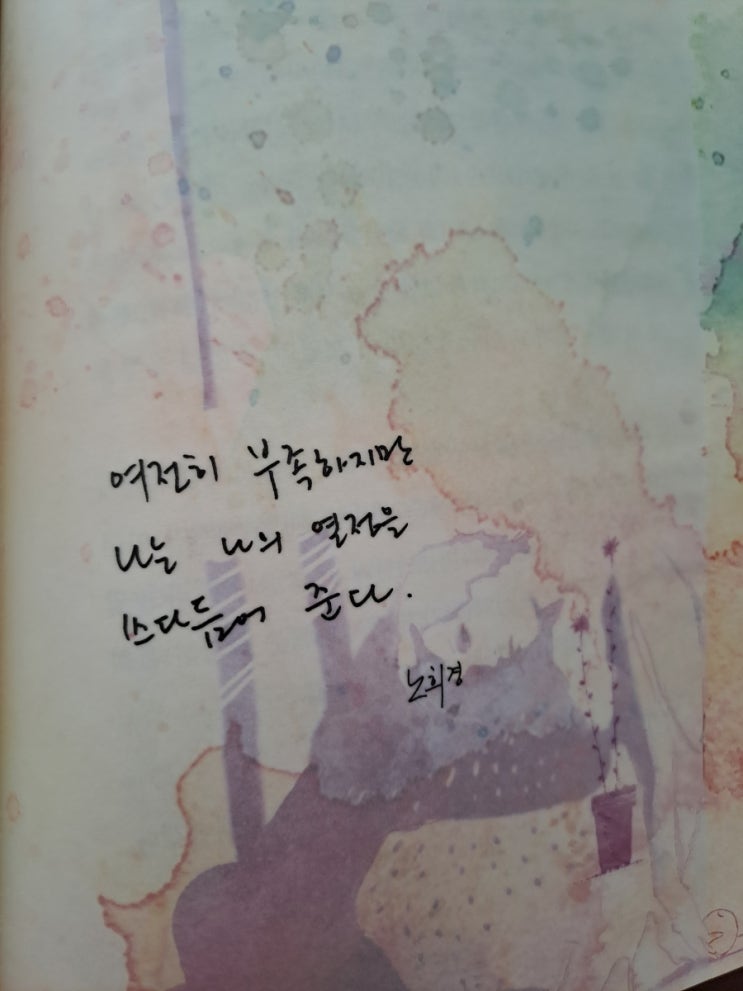 여전히 부족하지만
나는 나의 열정을
쓰다듬어 준다.
노희경